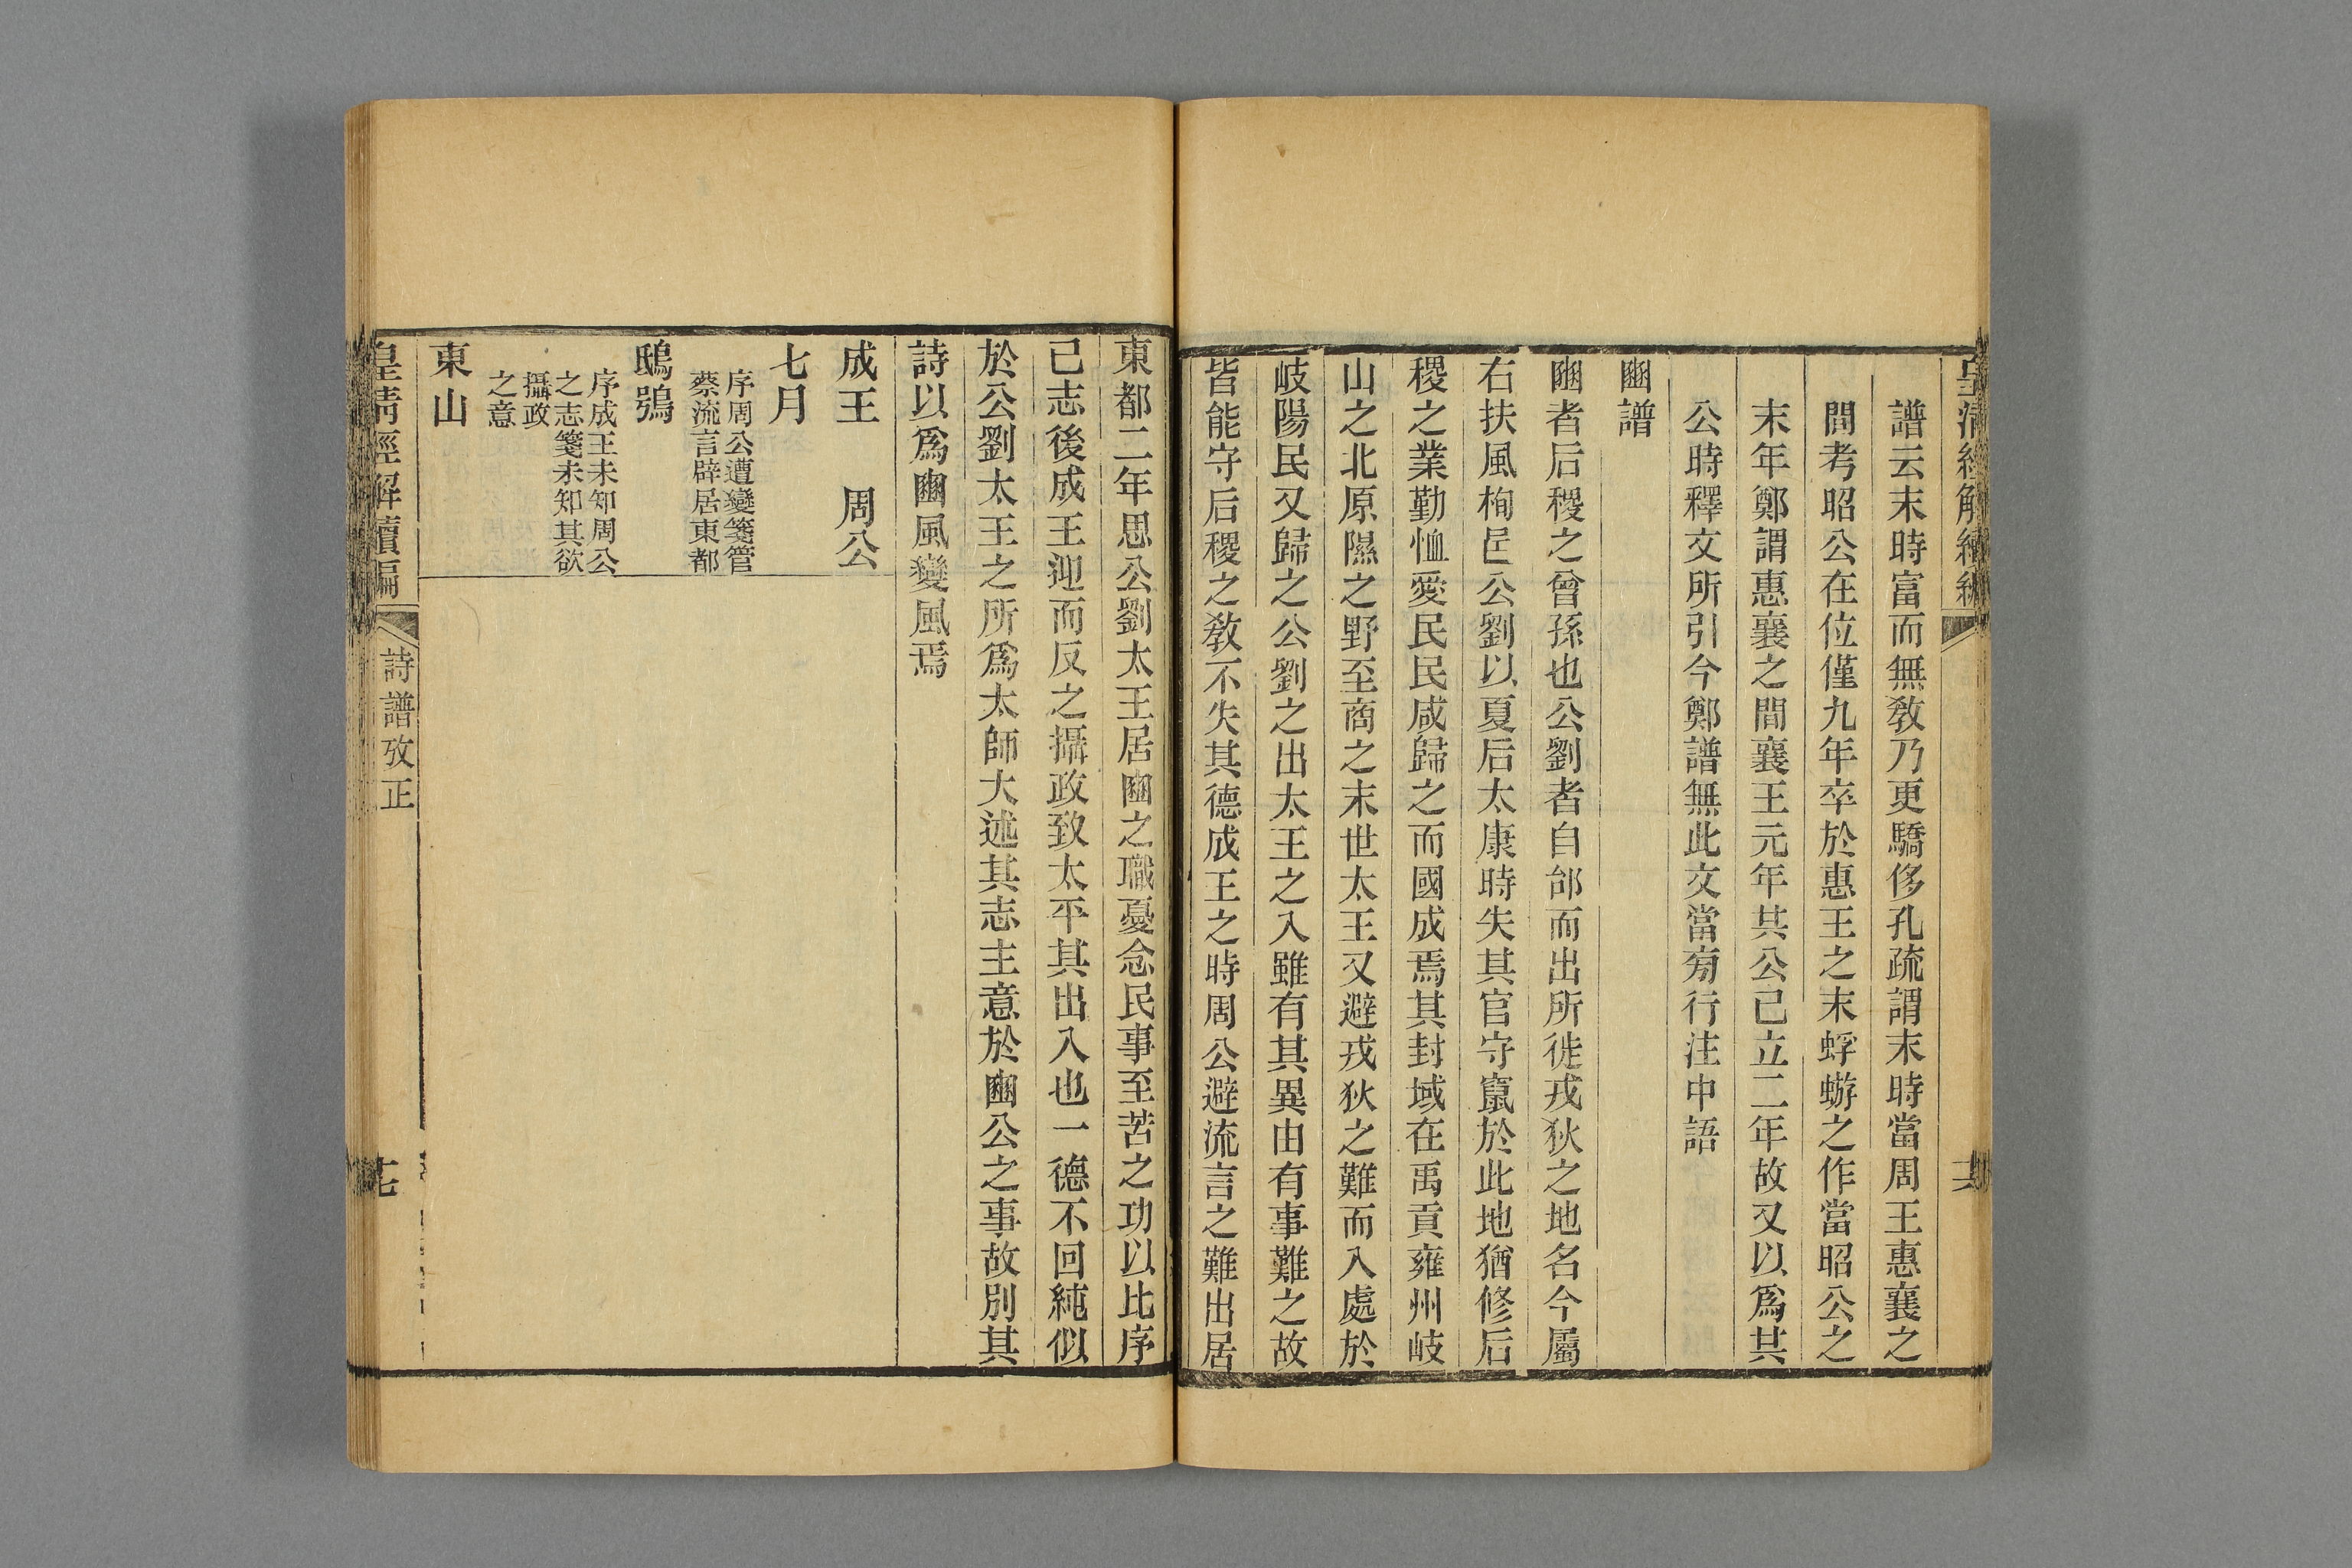 皇清經解續編
譜云末時富而無敎乃更驕侈孔疏謂末時當周王惠襄之
間考昭公在位僅九年卒於惠王之末蜉蝣之作當昭公之
末年鄭謂惠襄之間襄王元年共公已立二年故又以爲共
公時釋文所引今鄭譜無此文當旁行注中語
豳譜
豳者后稷之曾孫也公劉者自邰而出所徙戎狄之地名今屬
右扶風栒邑公劉以夏后太康時失其官守竄於此地猶修后
稷之業勤恤愛民民咸歸之而國成焉其封域在禹貢雍州岐
山之北原隰之野至商之末世太王又避戎狄之難而入處於
岐陽民又歸之公劉之出太王之入雖有其異由有事難之故
皆能守后稷之敎不失其德成王之時周公避流言之難出居
東都二年思公劉太王居豳之職憂念民事至苦之功以比序
己志後成王迎而反之攝政致太平其出入也一德不回純似
於公劉太王之所爲太師大述其志主意於豳公之事故別其
詩以爲豳風變風焉
成王　周公
七月
序周公遭變箋管
蔡流言辟居東都
鴟鴞
序成王未知周公
之志箋未知其欲
攝政
之意
東山
皇清經解續編
詩譜攷正